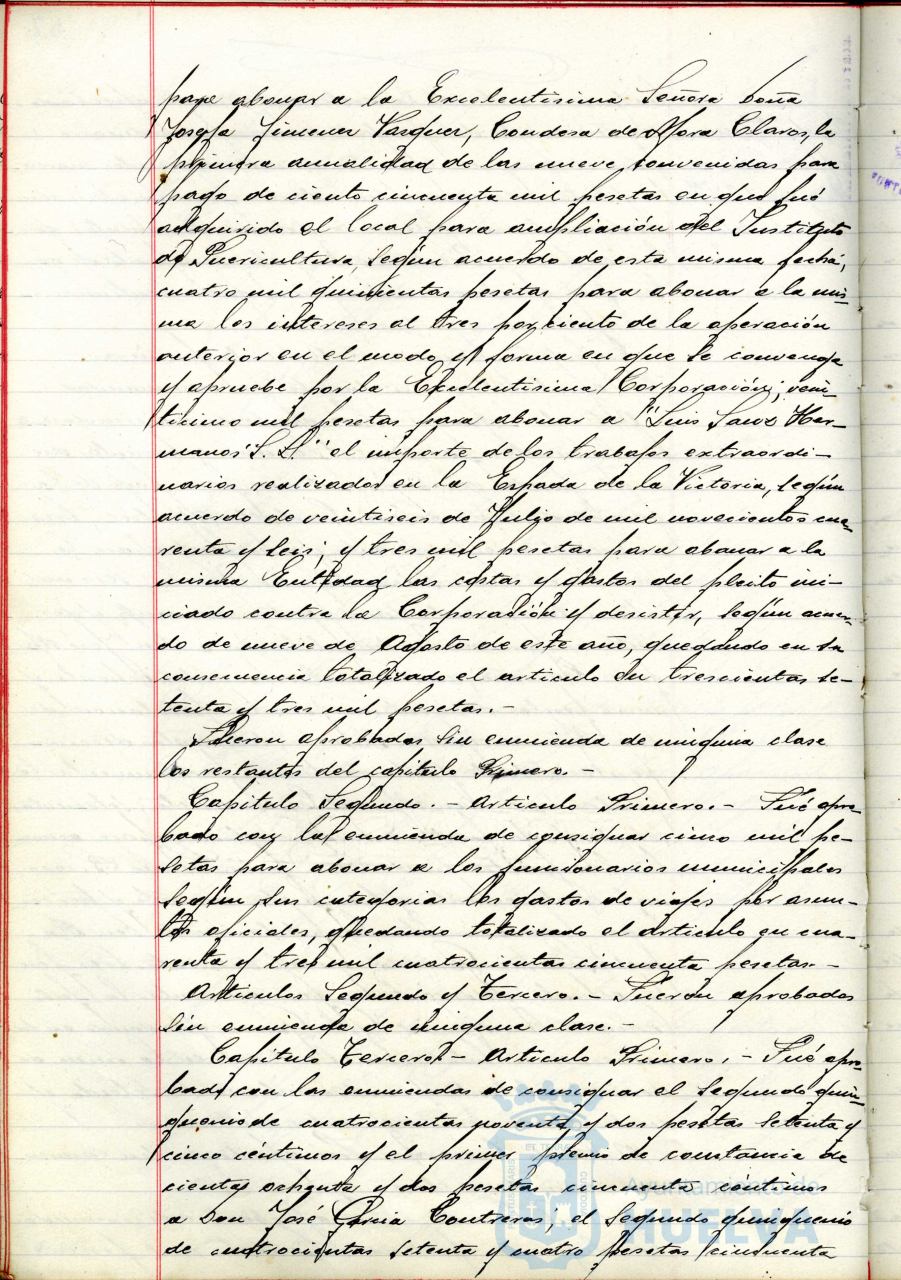 para abonar a la Excelentísima Señora Doña
Josefa Jimenez Vazquez, Condesa de Mora Claros, la
primera anualidad de las nueve convenidas para
pago de ciento cincuenta mil pesetas en que fué
adquirido el local para ampliación del Instituto
de Puericultura, según acuerdo de esta misma fecha;
cuatro mil quinientas pesetas para abonar a la mis-
ma los intereses al tres por ciento de la operación
anterior en el modo y forma en que se convenga
y apruebe por la Excelentísima Corporación; vein-
ticinco mil pesetas para abonar a "Luis Sanz Her-
manos S. L." el importe de los trabajos extraordi-
narios realizados en la Espada de la Victoria, según
acuerdo de veintiseis de Julio de mil novecientos cua-
renta y seis; y tres mil pesetas para abonar a la
misma Entidad las costas y gastos del pleito ini-
ciado contra la Corporación y desistir, según acuer-
do de nueve de Agosto de este año, quedando en su
consecuencia totalizado el articulo en trescientas se-
tenta y tres mil pesetas.-
Fueron aprobados sin enmienda de ninguna clase
los restantes del capitulo Primero.-
Capitulo Segundo.- Articulo Primero.- Fué apro-
bado con la enmienda de consignar cinco mil pe-
setas para abonar a los funcionarios municipales
según sus categorias los gastos de viajes por asun-
tos oficiales, quedando totalizado el articulo en cua-
renta y tres mil cuatrocientas cincuenta pesetas.-
Articulos Segundo y Tercero.- Fueron aprobados
sin enmienda de ninguna clase.-
Capitulo Tercero.- Articulo Primero.- Fué apro-
bado con las enmiendas de consignar el segundo quin-
quenio de cuatrocientas noventa y dos pesetas setenta y
cinco céntimos y el primer premio de constancia de
cientas ochenta y dos pesetas cincuenta céntimos
a Don José Garcia Contreras; el segundo quinquenio
de cuatrocientas setenta y cuatro pesetas cincuenta
Ayuntamiento de
HUELVA